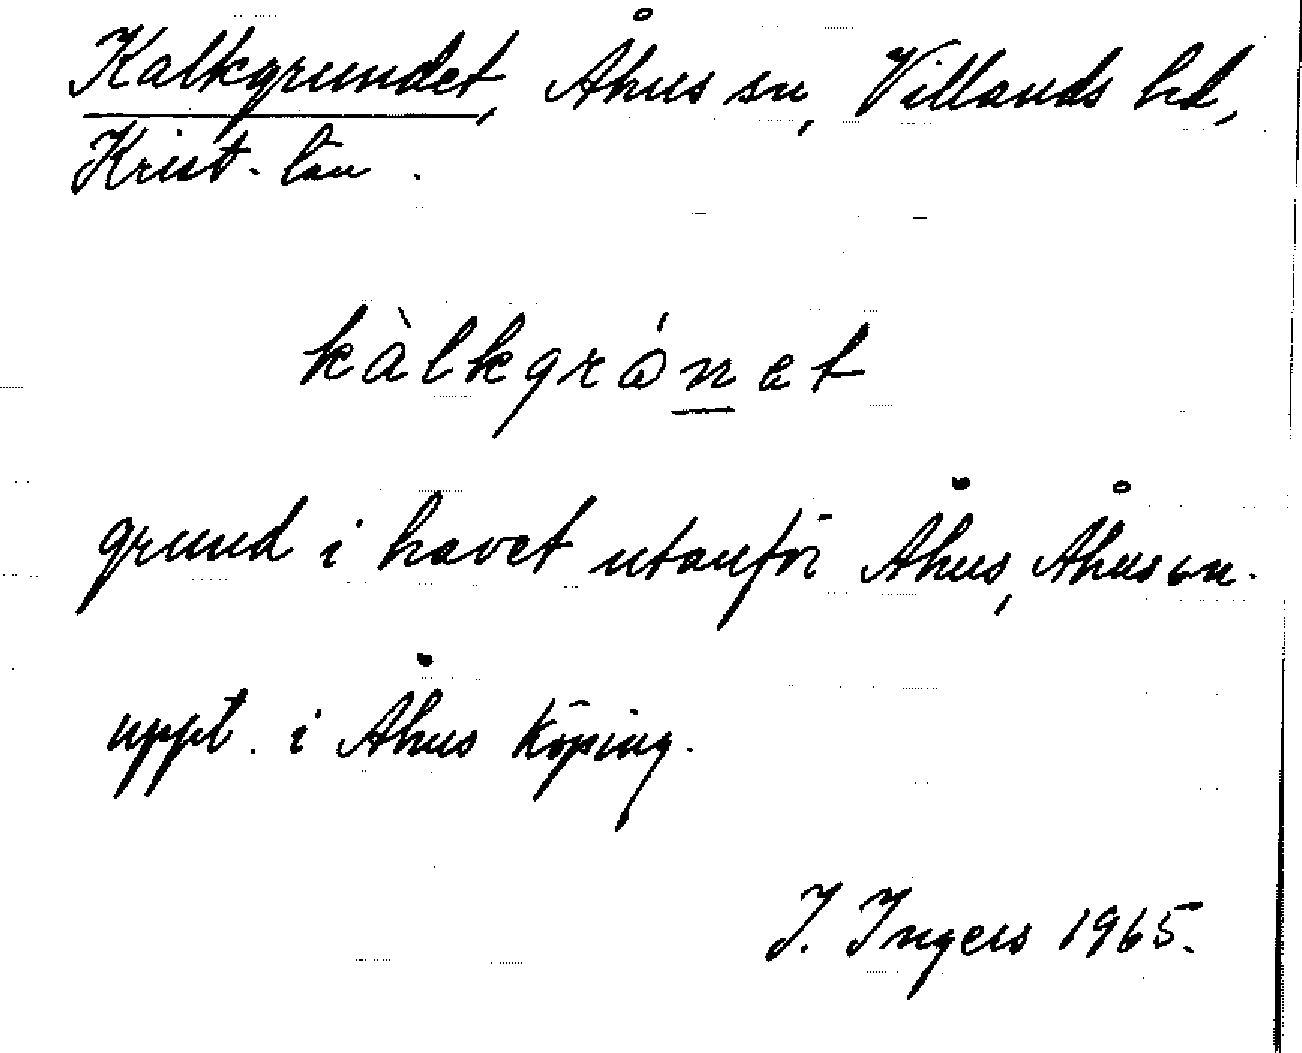 Kalkgrundet, Åhus sn, Villands hd,
Krist. län.
kàlkgrónet
grund i havet utanför Åhus, Åhus sn.
uppt. i Åhus köping.
I. Ingers 1965.